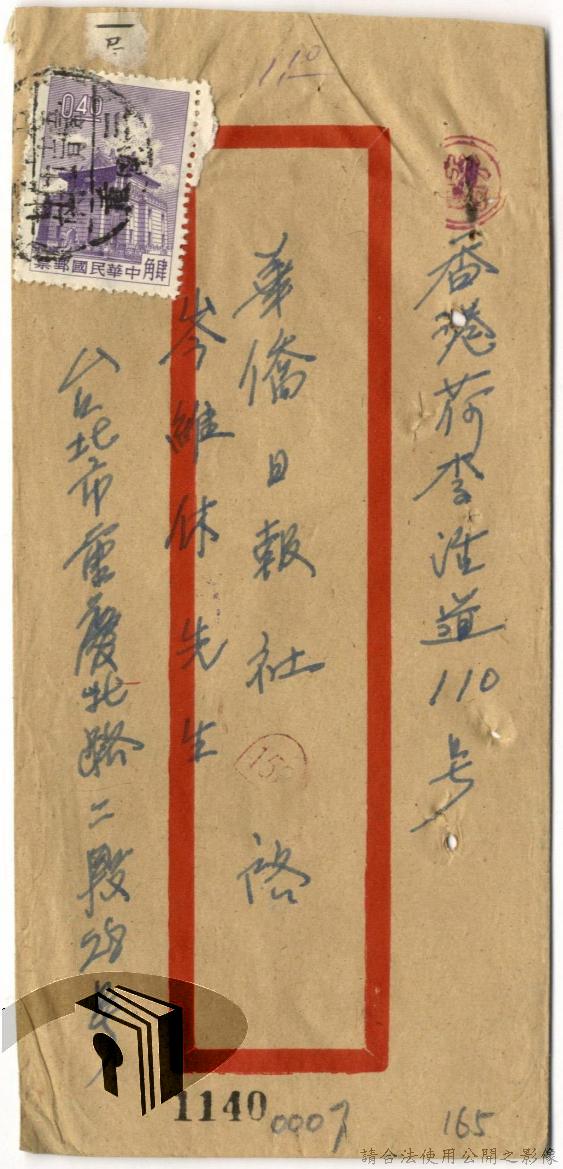 香港荷李活道110号
華僑日報社 啓
岑維休先生
台北市重慶北路二段28号
0.40
角肆 中華民國郵票
1.10
15
1140
0007
165
請合法使用公開之影像